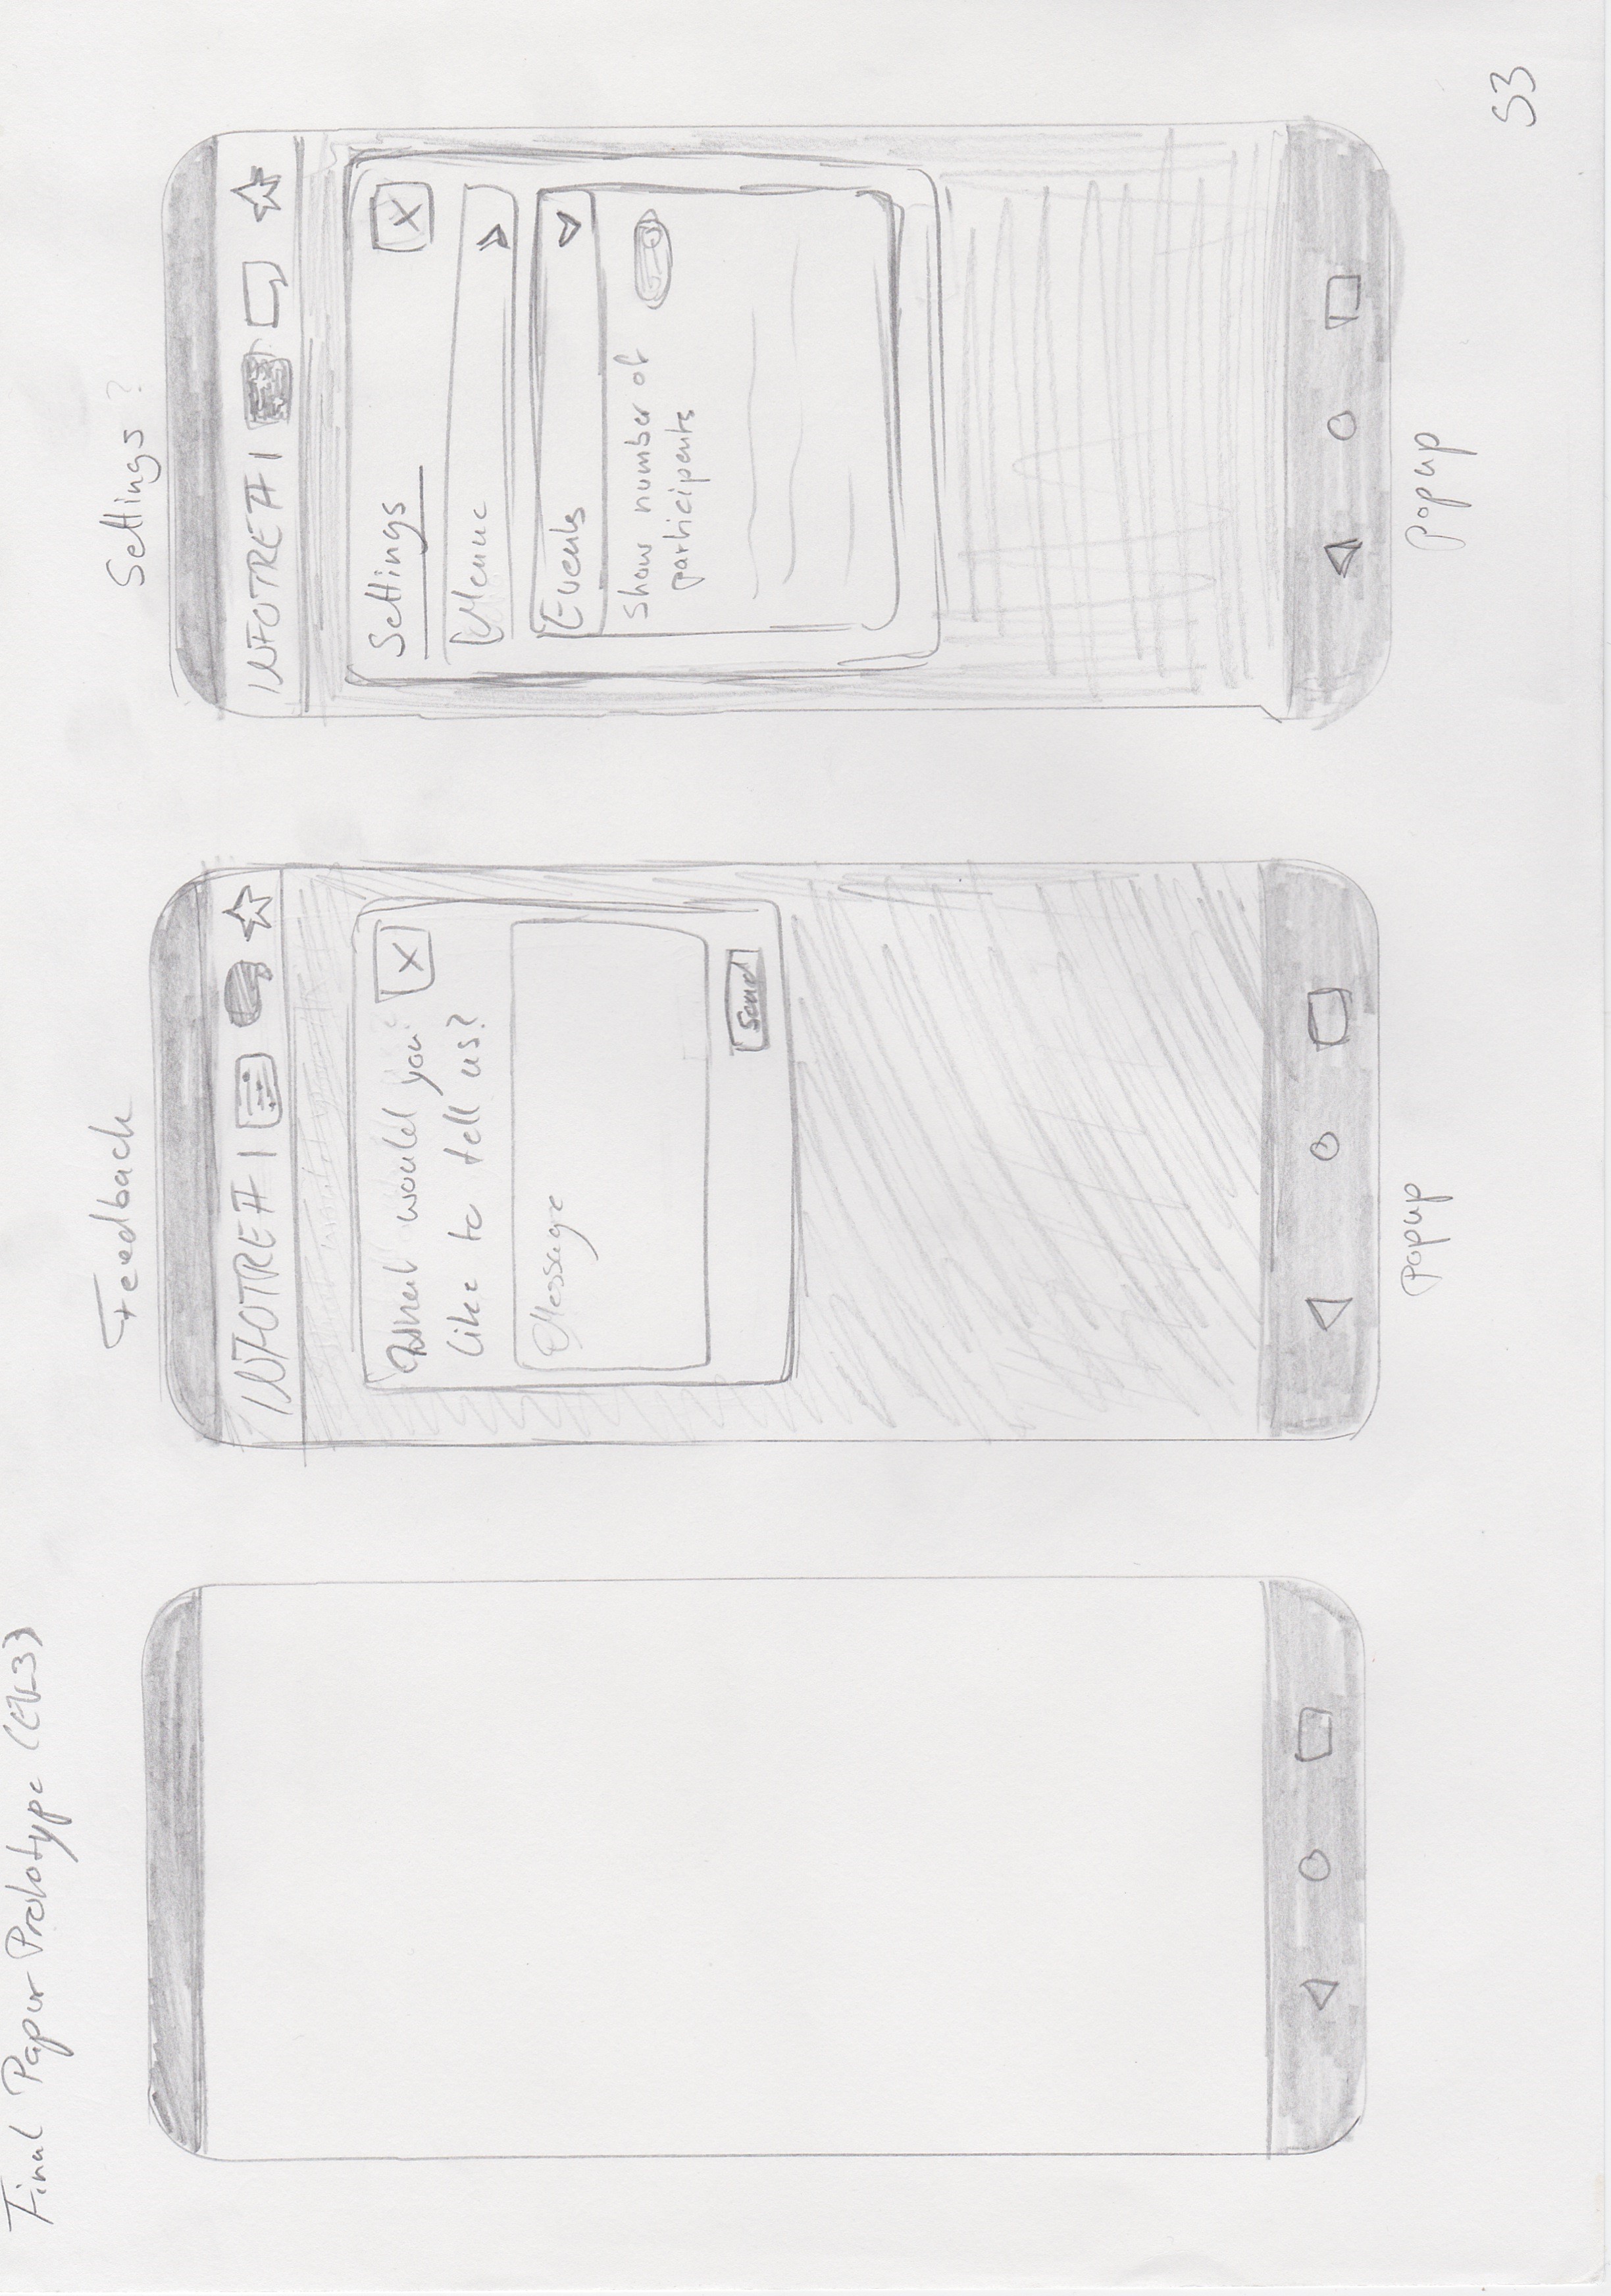 Final Paper Prototype (EL3)
Feedback
INFOTREFF
What would you
like to tell us?
X
Message
Send
Popup
Settings ?
INFOTREFF
Settings
X
Menue
Events
Show number of
participents
Popup
S3